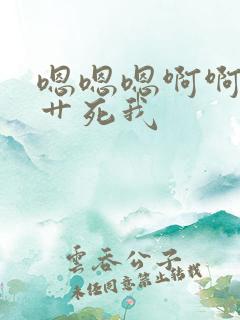 嗯嗯嗯啊啊
艹死我
雲吞公子
未经同意禁止转载